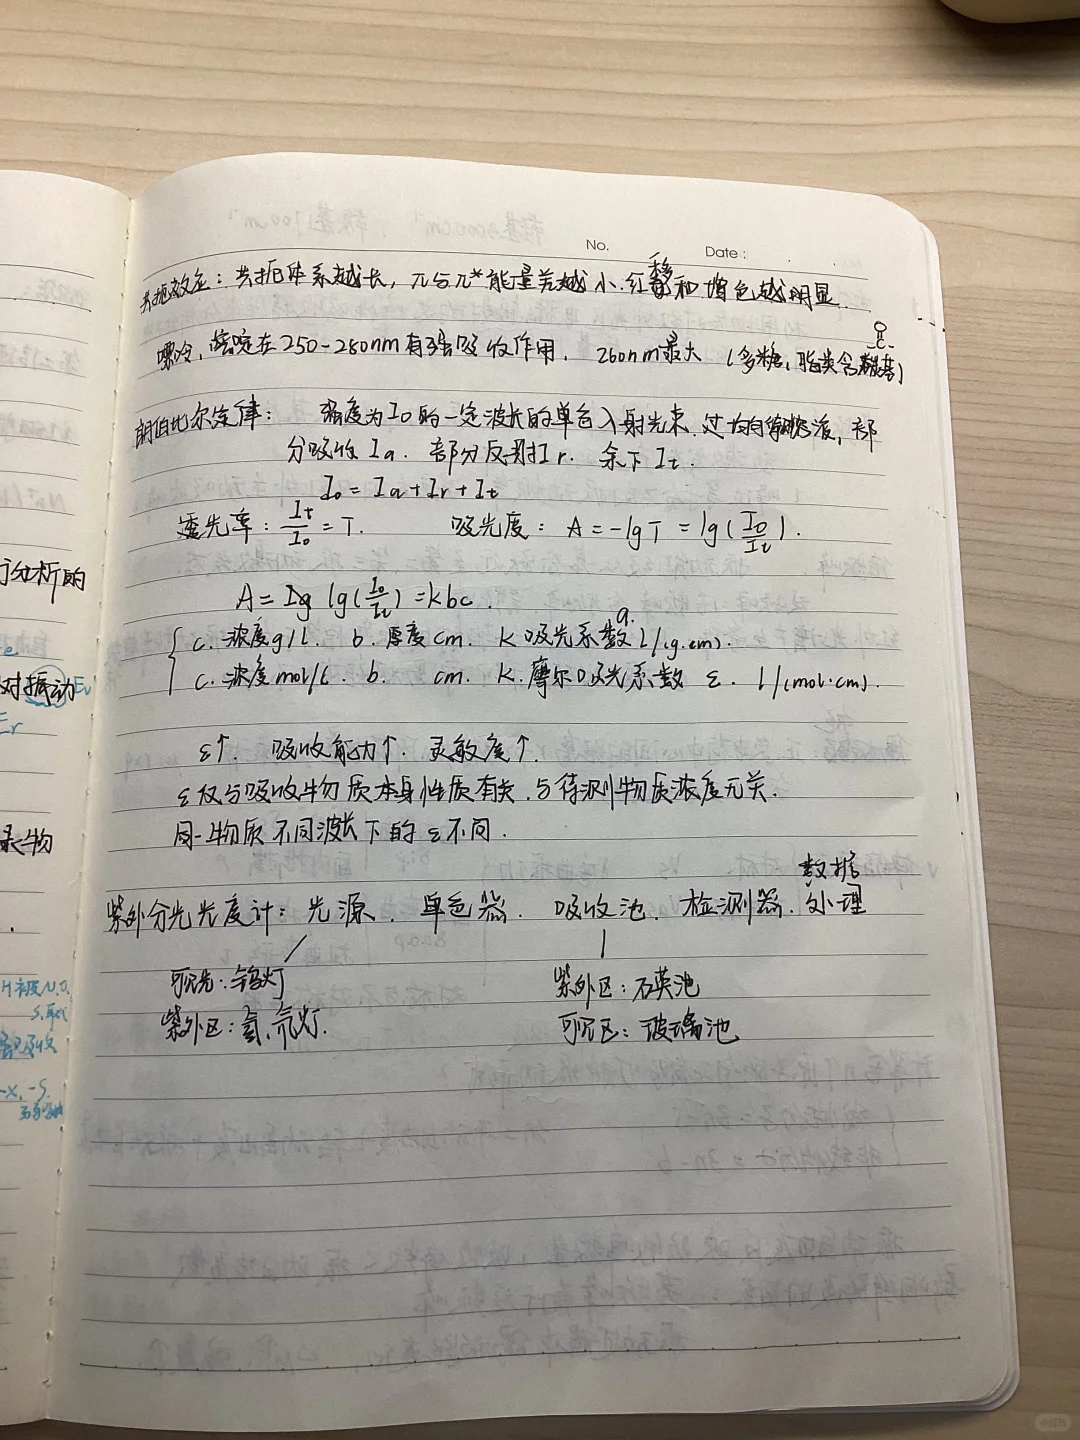 No. Date:
共轭效应：共轭体系越长，π与π*能量差越小.红移和增色越明显.
嘌呤，嘧啶在250-280nm有强吸收作用. 260nm最大 (多糖，脂类含羰基)
朗伯比尔定律： 强度为I0的一定波长的单色入射光束.过均匀待测溶液，部
分吸收Ia. 部分反射Ir. 余下It.
I0 = Ia+Ir+It
透光率：It/I0 = T. 吸光度：A = -lgT = lg(I0/It).
A = Ig lg(I0/It) = kbc.
c. 浓度g/L. b. 厚度cm. K 吸光系数a L/(g.cm).
c. 浓度mol/L. b. cm. K. 摩尔吸光系数 ε. L/(mol·cm).
ε↑. 吸收能力↑. 灵敏度↑.
ε仅与吸收物质本身性质有关.与待测物质浓度无关.
同一物质不同波长下的ε不同.
紫外分光光度计：光源. 单色器. 吸收池. 检测器. 数据处理
可见光：钨灯 紫外区：石英池
紫外区：氢、氘灯. 可见区：玻璃池
分析的
对振动
Er
录物